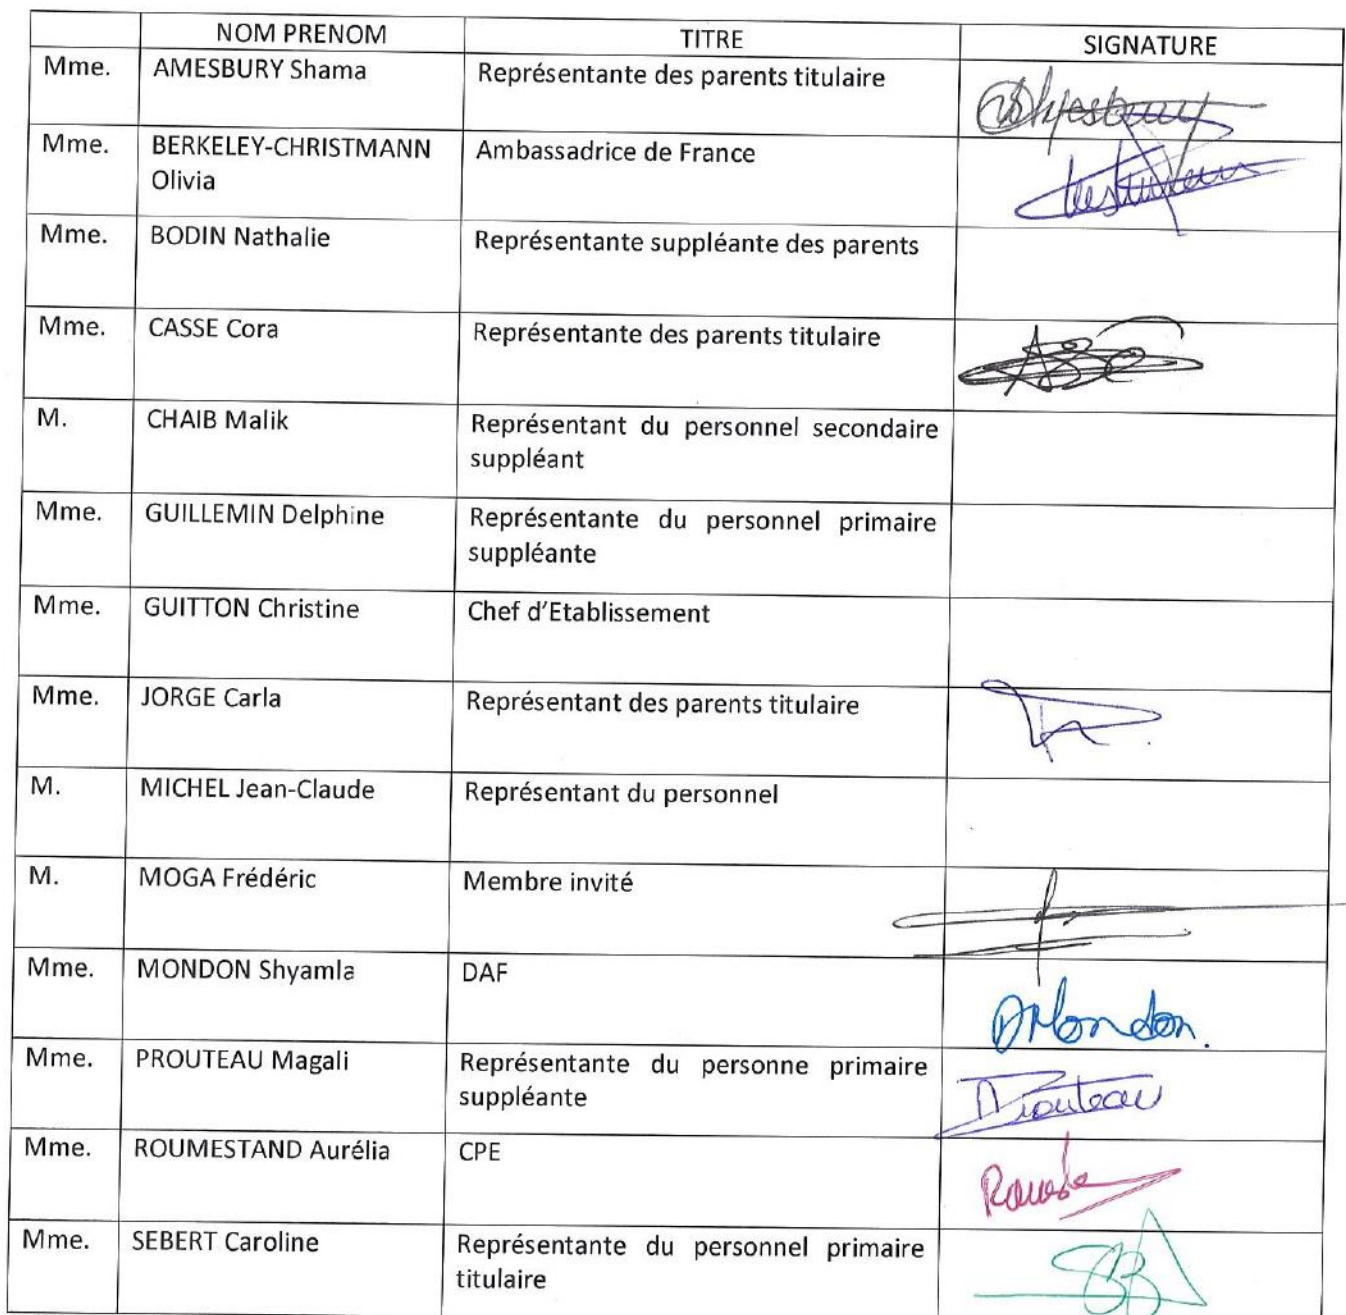 NOM PRENOM TITRE SIGNATURE
Mme. AMESBURY Shama Représentante des parents titulaire
Mme. BERKELEY-CHRISTMANN Ambassadrice de France
Olivia
Mme. BODIN Nathalie Représentante suppléante des parents
Mme. CASSE Cora Représentante des parents titulaire
M. CHAIB Malik Représentant du personnel secondaire
suppléant
Mme. GUILLEMIN Delphine Représentante du personnel primaire
suppléante
Mme. GUITTON Christine Chef d'Etablissement
Mme. JORGE Carla Représentant des parents titulaire
M. MICHEL Jean-Claude Représentant du personnel
M. MOGA Frédéric Membre invité
Mme. MONDON Shyamla DAF
Mondon.
Mme. PROUTEAU Magali Représentante du personne primaire
suppléante Prouteau
Mme. ROUMESTAND Aurélia CPE
Mme. SEBERT Caroline Représentante du personnel primaire
titulaire